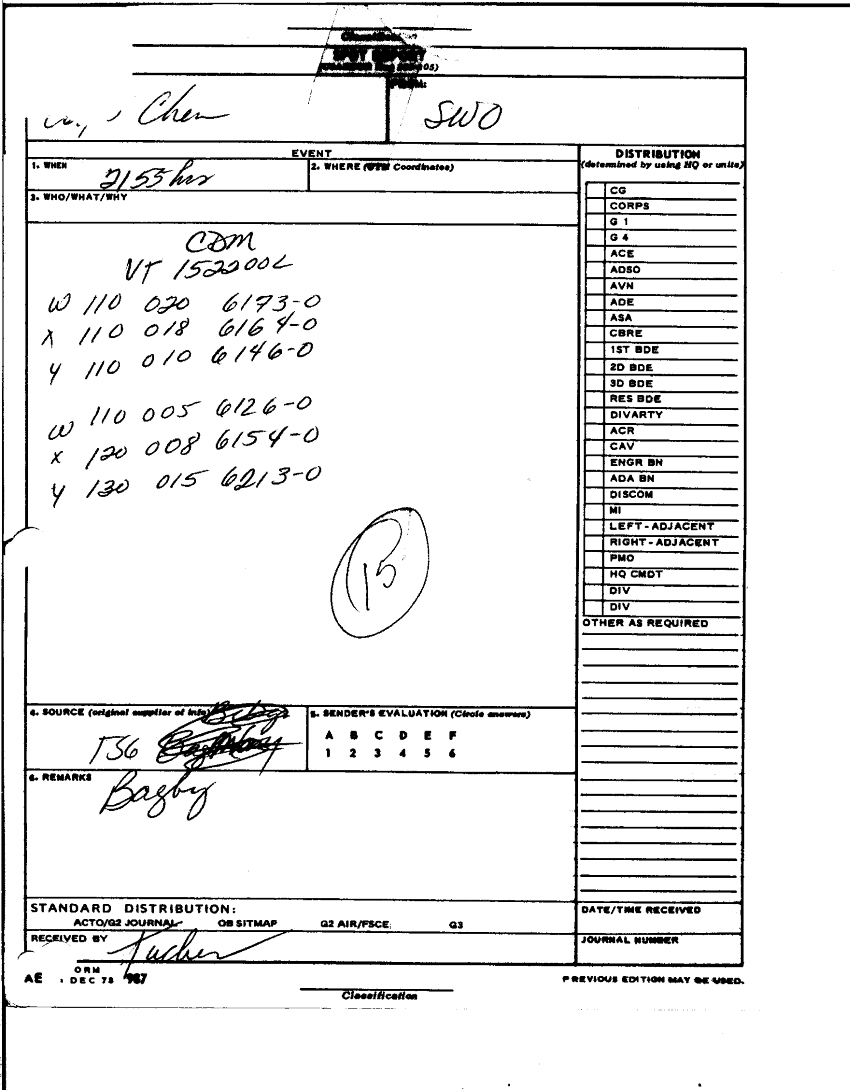 Classification
SPOT REPORT
FROM:
Chem
SWO
EVENT
1. WHEN
2155 hrs
2. WHERE (UTM Coordinates)
3. WHO/WHAT/WHY
CDM
VT 152200L
W 110 020 6173-0
X 110 018 6164-0
Y 110 010 6146-0
W 110 005 6126-0
X 120 008 6154-0
Y 130 015 6213-0
15
4. SOURCE (original supplier of info)
TSG
5. SENDER'S EVALUATION (Circle answers)
A B C D E F
1 2 3 4 5 6
6. REMARKS
Bagby
STANDARD DISTRIBUTION:
ACTO/G2 JOURNAL OB SITMAP G2 AIR/FSCE G3
RECEIVED BY
Tucker
AE FORM 1 DEC 78 987
Classification
DISTRIBUTION
(determined by using HQ or units)
CG
CORPS
G 1
G 4
ACE
ADSO
AVN
ADE
ASA
CBRE
1ST BDE
2D BDE
3D BDE
RES BDE
DIVARTY
ACR
CAV
ENGR BN
ADA BN
DISCOM
MI
LEFT-ADJACENT
RIGHT-ADJACENT
PMO
HQ CMDT
DIV
DIV
OTHER AS REQUIRED
DATE/TIME RECEIVED
JOURNAL NUMBER
PREVIOUS EDITION MAY BE USED.